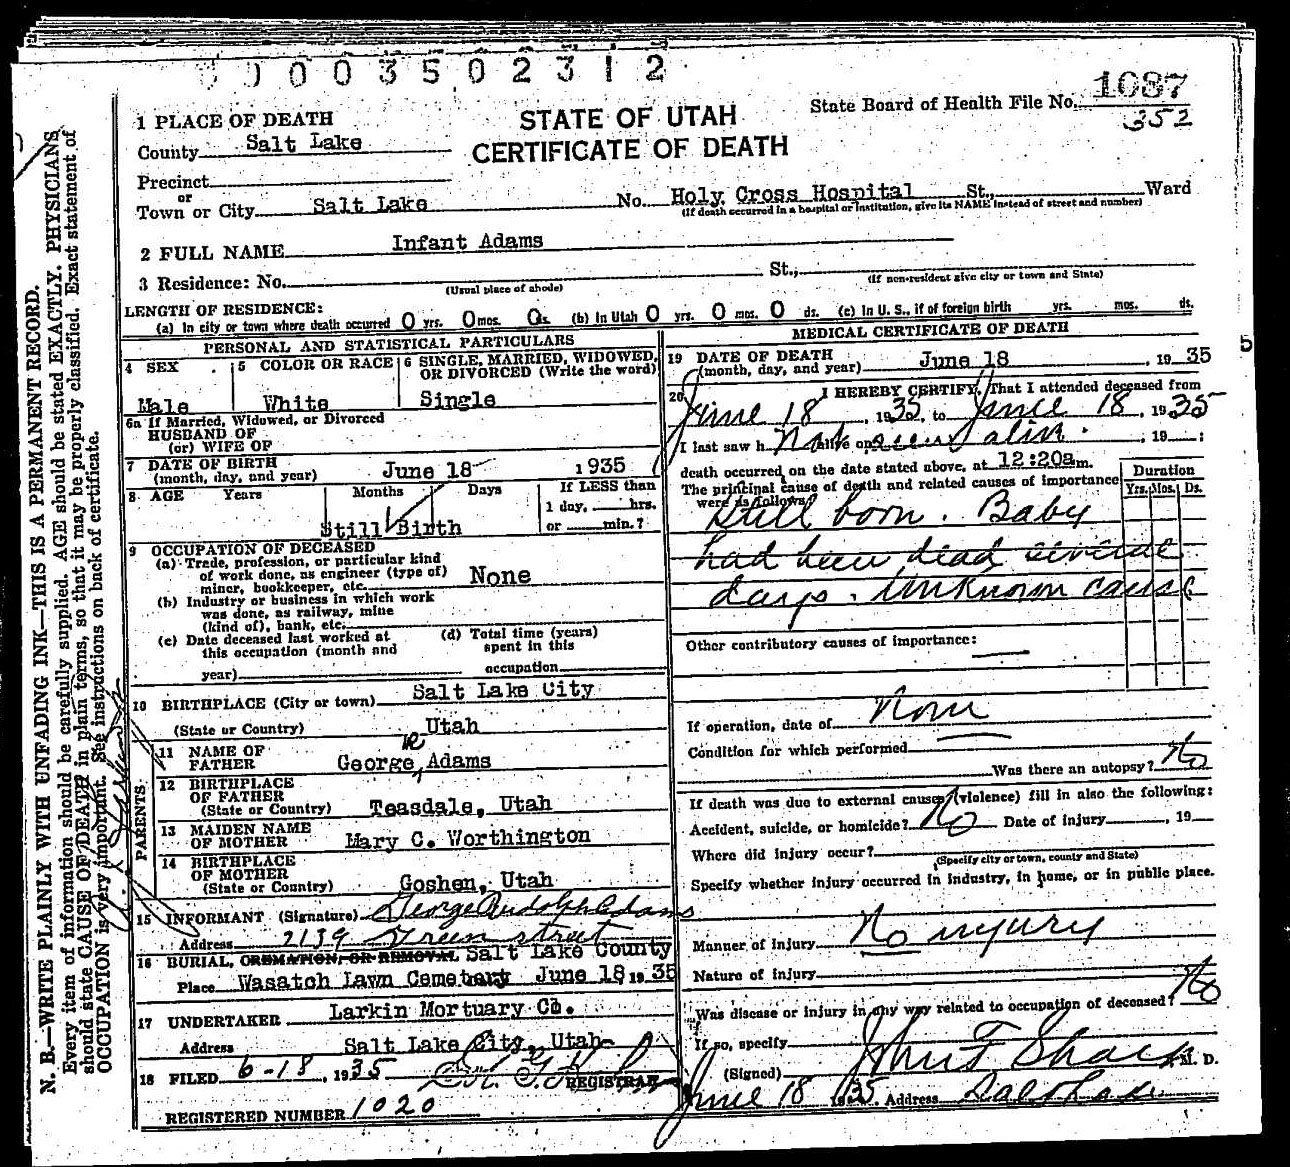 0003502312
State Board of Health File No. 1087
352
STATE OF UTAH
CERTIFICATE OF DEATH
1 PLACE OF DEATH
County Salt Lake
Precinct
or
Town or City Salt Lake No. Holy Cross Hospital St., Ward
(If death occurred in a hospital or institution, give its NAME instead of street and number)
2 FULL NAME Infant Adams
3 Residence: No. St.,
(Usual place of abode) (If non-resident give city or town and State)
LENGTH OF RESIDENCE:
(a) In city or town where death occurred 0 yrs. 0 mos. 0 ds. (b) In Utah 0 yrs. 0 mos. 0 ds. (c) In U. S., if of foreign birth yrs. mos. ds.
PERSONAL AND STATISTICAL PARTICULARS
4 SEX 5 COLOR OR RACE 6 SINGLE, MARRIED, WIDOWED, OR DIVORCED (Write the word)
Male White Single
6a If Married, Widowed, or Divorced
HUSBAND OF
(or) WIFE OF
7 DATE OF BIRTH
(month, day, and year) June 18 1935
8 AGE Years Months Days If LESS than
1 day, hrs.
or min.?
Still Birth
9 OCCUPATION OF DECEASED
(a) Trade, profession, or particular kind
of work done, as engineer (type of)
miner, bookkeeper, etc. None
(b) Industry or business in which work
was done, as railway, mine
(kind of), bank, etc.
(c) Date deceased last worked at
this occupation (month and
year)
(d) Total time (years)
spent in this
occupation
10 BIRTHPLACE (City or town) Salt Lake City
(State or Country) Utah
PARENTS
11 NAME OF
FATHER George R Adams
12 BIRTHPLACE
OF FATHER
(State or Country) Teasdale, Utah
13 MAIDEN NAME
OF MOTHER Mary C. Worthington
14 BIRTHPLACE
OF MOTHER
(State or Country) Goshen, Utah
15 INFORMANT (Signature) George Rudolph Adams
Address 2139 Green street
16 BURIAL, CREMATION, OR REMOVAL Salt Lake County
Place Wasatch Lawn Cemetery June 18 1935
17 UNDERTAKER Larkin Mortuary Co.
Address Salt Lake City, Utah
18 FILED 6-18, 1935
REGISTRAR
REGISTERED NUMBER 1020
MEDICAL CERTIFICATE OF DEATH
19 DATE OF DEATH
(month, day, and year) June 18, 1935
20 I HEREBY CERTIFY, That I attended deceased from
June 18 1935, to June 18, 1935
I last saw h Not seen alive. alive on , 19 ;
death occurred on the date stated above, at 12:20a m.
The principal cause of death and related causes of importance
were as follows:
Duration
Yrs. Mos. Ds.
Still born. Baby
had been dead several
days. Unknown cause
Other contributory causes of importance:
If operation, date of None
Condition for which performed
Was there an autopsy? No
If death was due to external causes (violence) fill in also the following:
Accident, suicide, or homicide? No Date of injury , 19
Where did injury occur?
(Specify city or town, county and State)
Specify whether injury occurred in industry, in home, or in public place.
Manner of injury No injury
Nature of injury
Was disease or injury in any way related to occupation of deceased? No
If so, specify
(Signed) John F Sharp M. D.
June 18 1935 Address Salt Lake
5
N. B.—WRITE PLAINLY WITH UNFADING INK—THIS IS A PERMANENT RECORD.
Every item of information should be carefully supplied. AGE should be stated EXACTLY. PHYSICIANS
should state CAUSE OF DEATH in plain terms, so that it may be properly classified. Exact statement of
OCCUPATION is very important. See instructions on back of certificate.